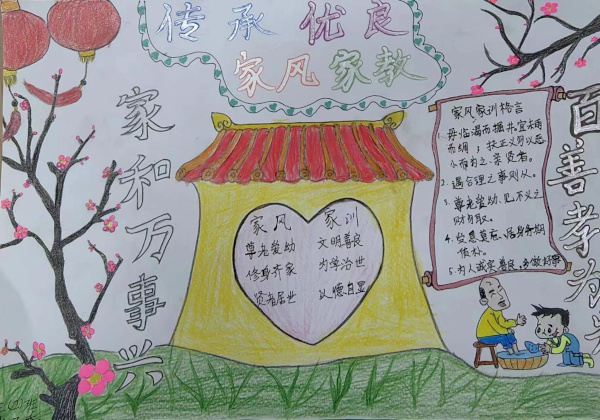 传承优良
家风家教
家和万事兴
百善孝为先
家风 家训
尊老爱幼 文明善良
修身齐家 为学治世
贤者居世 以德自显
家风家训格言
1. 毋临渴而掘井,宜未雨
而绸
扶正义勿以恶
小而为之
2. 遇合理之事则从。
3. 尊老爱幼,见不义之
财勿取。
4.
5. 为人诚实善良,多做好事